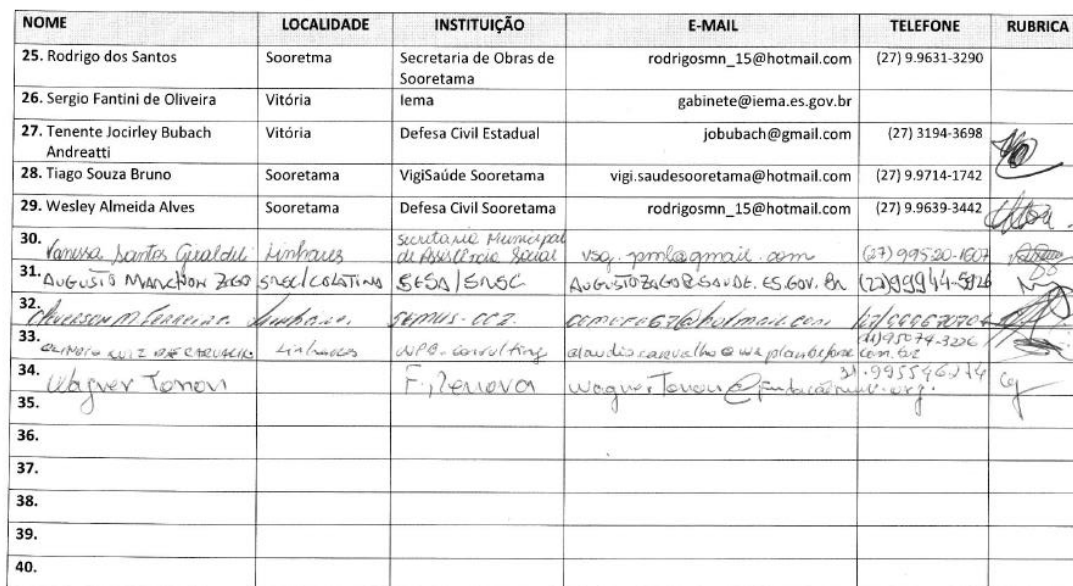 NOME LOCALIDADE INSTITUIÇÃO E-MAIL TELEFONE RUBRICA
25. Rodrigo dos Santos Sooretma Secretaria de Obras de Sooretama rodrigosmn_15@hotmail.com (27) 9.9631-3290
26. Sergio Fantini de Oliveira Vitória Iema gabinete@iema.es.gov.br
27. Tenente Jocirley Bubach Andreatti Vitória Defesa Civil Estadual jobubach@gmail.com (27) 3194-3698
28. Tiago Souza Bruno Sooretama VigiSaúde Sooretama vigi.saudesooretama@hotmail.com (27) 9.9714-1742
29. Wesley Almeida Alves Sooretama Defesa Civil Sooretama rodrigosmn_15@hotmail.com (27) 9.9639-3442
30. Vanessa Santos Linhares Secretaria Municipal de Assistência Social vsg.pml@gmail.com (27) 99520-1607
31. AUGUSTO MANCHON ZAGO SRSC/COLATINA SESA/SRSC AUGUSTOZAGO@SAUDE.ES.GOV.BR (27)99944-5926
32. M. Ferreira. Linhares. SEMUS-CCZ
33. LUIZ DE CARVALHO Linhares consulting
34. Wagner Tonon F. Renova
35.
36.
37.
38.
39.
40.